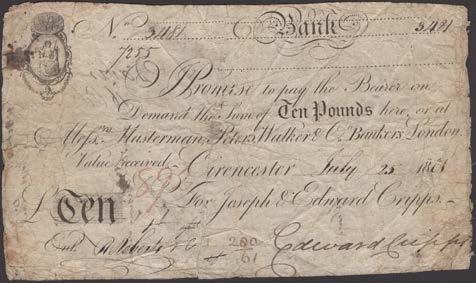 No. 3481 Bank 3481
7255
I Promise to pay the Bearer on
Demand the Sum of Ten Pounds here, or at
Messrs. Masterman, Peters, Walker & Co. Bankers London.
Value received Cirencester July 25
£ Ten For Joseph & Edward Cripps.
Entd. 200 Edward Cripps
61